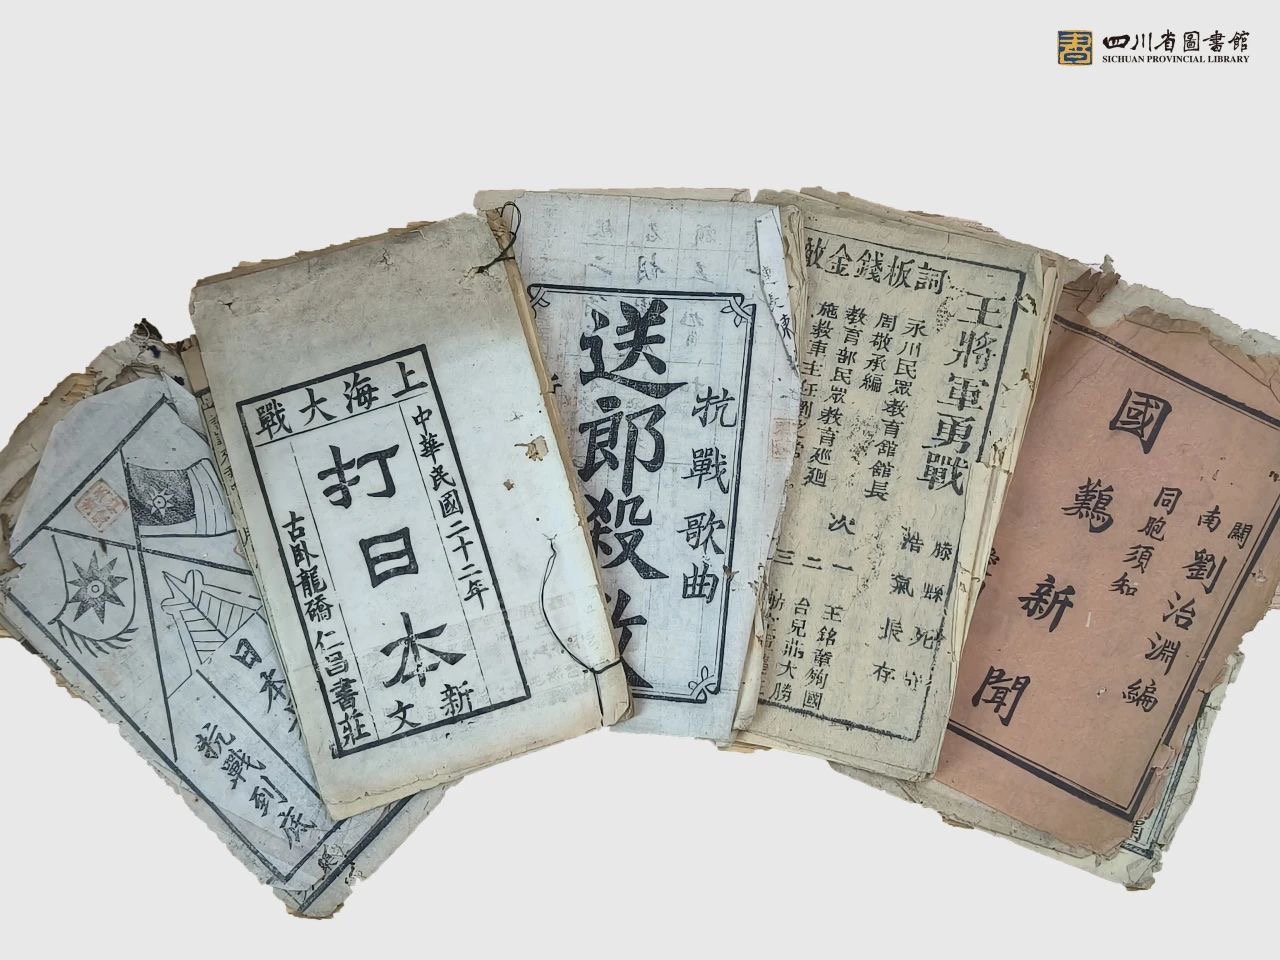 四川省圖書館
SICHUAN PROVINCIAL LIBRARY
日本
抗戰到底
上海大戰
中華民國二十二年
打日本
新文
古臥龍橋仁昌書莊
抗戰歌曲
送郎殺敵
金錢板詞
王將軍勇戰
永川民眾教育館館長
周敬承編
教育部民眾教育巡廻
施教車主任劉
滕縣死守
浩氣長存
次
一 王銘章殉國
二 台兒莊大勝
三
閬南劉治淵編
同胞須知
國難新聞